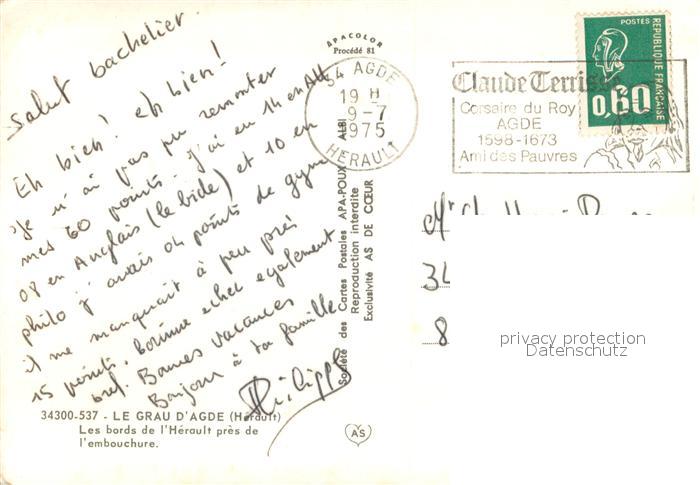 Salut bachelier
Eh bien! eh bien!
Je n'ai pas pu remonter
mes 60 points. J'ai eu 14 en All
08 en Anglais (le bide) et 10 en
philo j'avais 04 points de gym
il me manquait à peu près
15 points. Corinne echec egalement
bref. Bonnes vacances
Bonjour à ta famille
Philippe
34300-537 - LE GRAU D'AGDE (Hérault)
Les bords de l'Hérault près de
l'embouchure.
APACOLOR
Procédé 81
Société des Cartes Postales APA-POUX ALBI
Reproduction interdite
Exclusivité AS DE CŒUR
AS
34 AGDE
19 H
9-7
1975
HERAULT
Claude Terrisse
Corsaire du Roy
AGDE
1598-1673
Ami des Pauvres
POSTES
REPUBLIQUE FRANÇAISE
0,60
Mr
8
privacy protection
Datenschutz